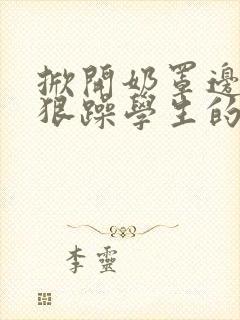 掀開奶罩邊
狠躁學生的
李靈